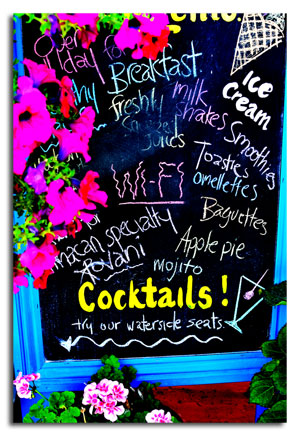 Over
day for
Breakfast
ICE
CREAM
freshly
juices
milk
shakes
Smoothies
Toasties
omellettes
WI-FI
Baguettes
specialty
Apple pie
mojito
Cocktails!
try our waterside seats